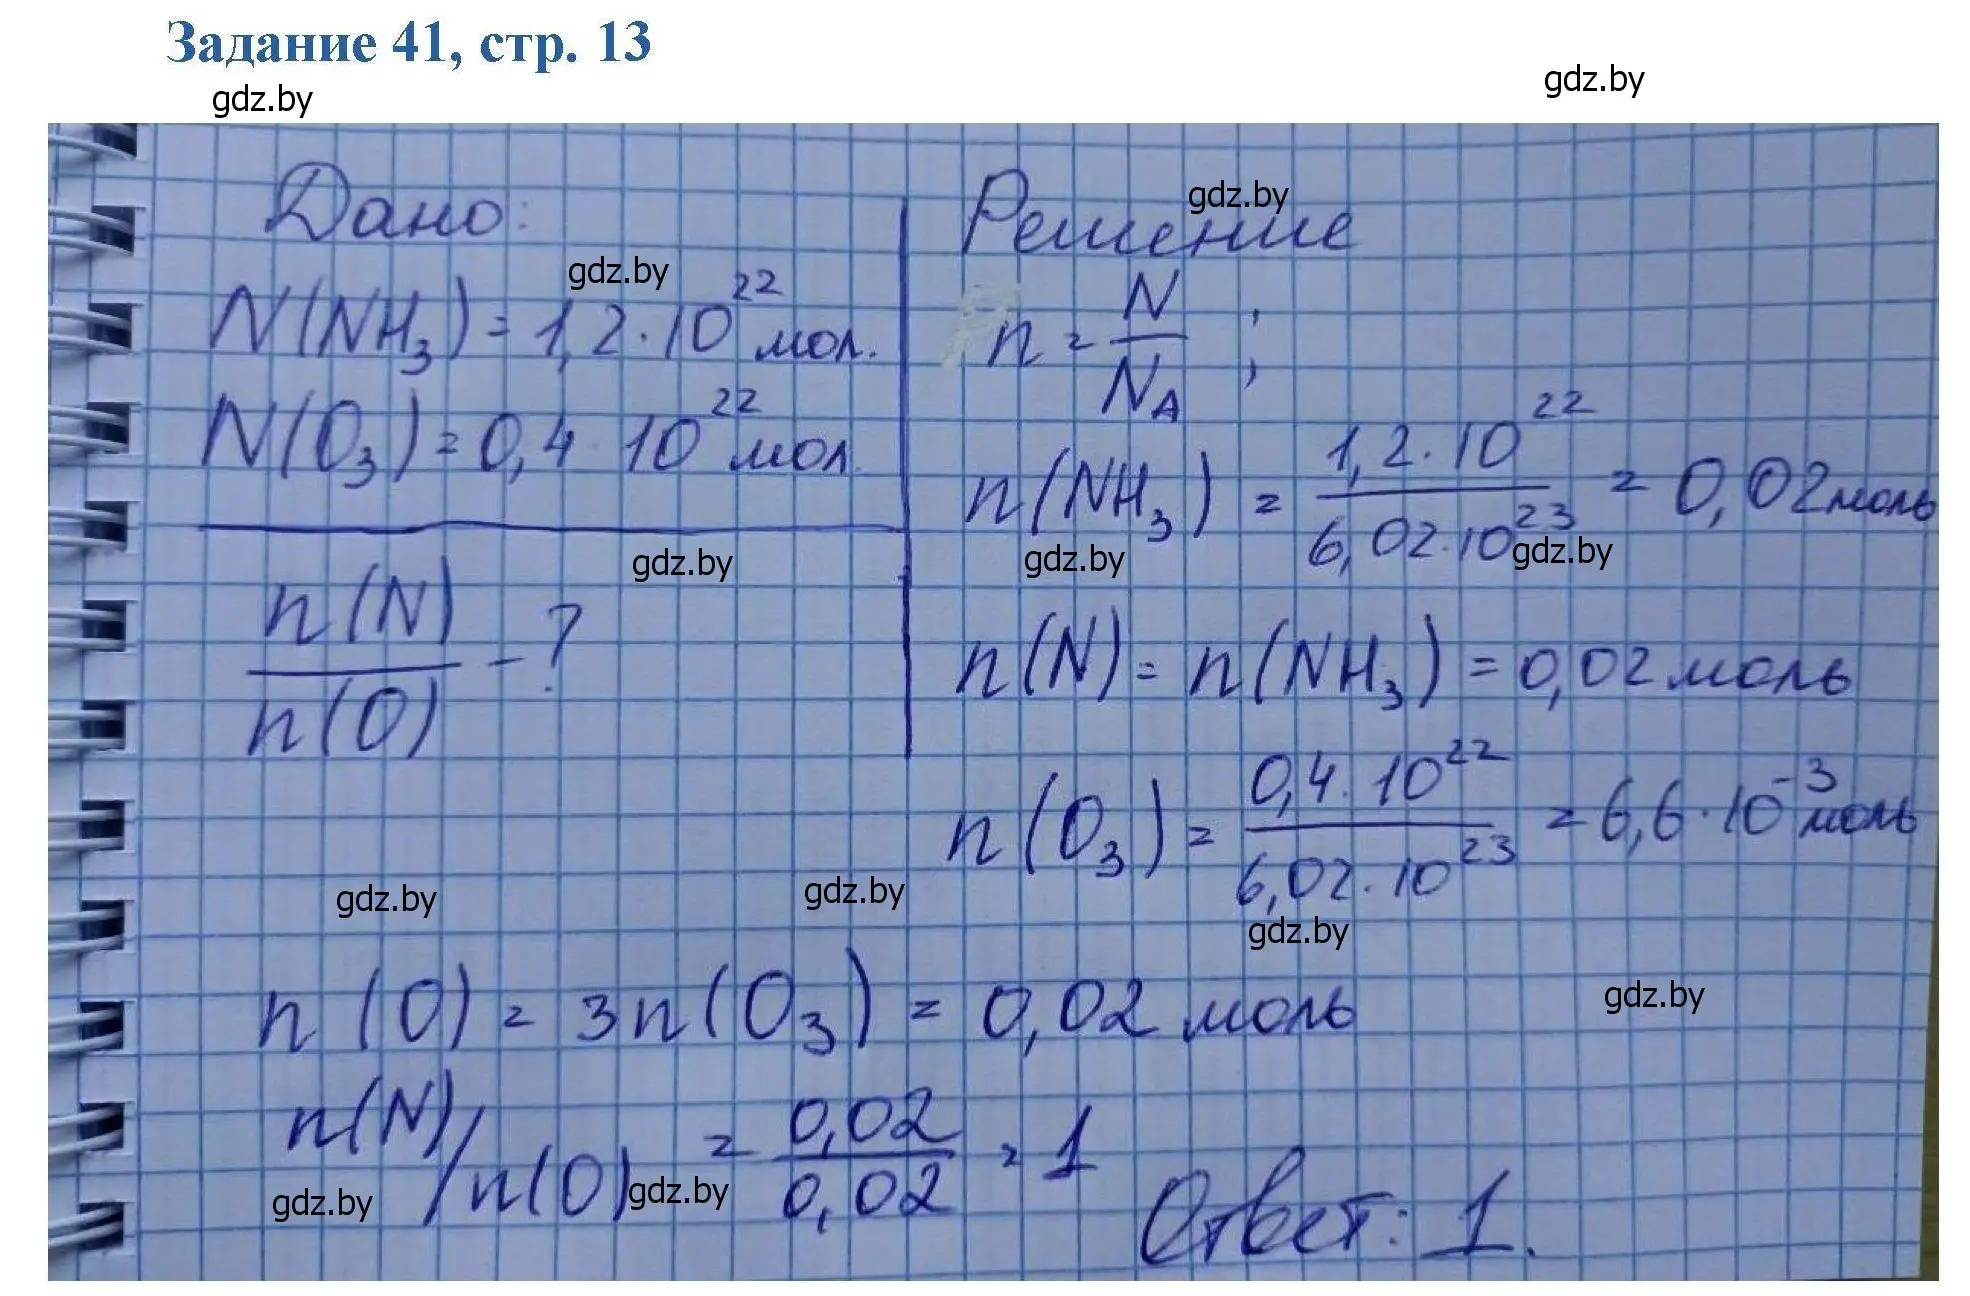 Задание 41, стр. 13
gdz.by
gdz.by
Дано:
N(NH₃) = 1,2 · 10²² мол.
N(O₃) = 0,4 · 10²² мол.
n(N)/n(O) - ?
Решение
n = N/Nₐ ;
n(NH₃) = 1,2 · 10²²/6,02 · 10²³ = 0,02 моль
n(N) = n(NH₃) = 0,02 моль
n(O₃) = 0,4 · 10²²/6,02 · 10²³ = 6,6 · 10⁻³ моль
n(O) = 3n(O₃) = 0,02 моль
n(N)/n(O) = 0,02/0,02 = 1
Ответ: 1.
gdz.by
gdz.by
gdz.by
gdz.by
gdz.by
gdz.by
gdz.by
gdz.by
gdz.by
gdz.by
gdz.by